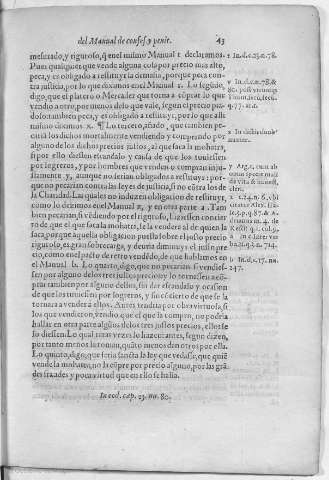 del Manual de confes. y penit. 43
mesurado, y riguroso, q̃ en el mismo Manual t declaramos.
Pues qualquier que vende alguna cosa por precio mas alto,
peca, y es obligado a restituyr la demasia, porque peca con-
tra justicia, por lo que diximos en el Manual u. Lo segũdo,
digo, que el platero o Mercader que torna a cõprar lo que
vendio a otro, por menos delo que vale, segun el precio pia-
doso tambien peca, y es obligado a restituyr, por lo que alli
mismo diximos x. ¶ Lo tercero, añado, que tambien pe-
caria los dichos mortalmente vendiendo y comprando por
alguno de los dichos precios justos, al que saca la mohatra,
si por ello diessen escandalo y causa de que los touiessen
por logreros, y por hombres que venden o compran injus-
tamente y, aunque no serian obligados a restituyr: por-
que no pecarian contra las leyes de justicia, si no cõtra los de
la Charidad. Las quales no induzen obligacion de restituyr,
como lo diximos en el Manual z, y en otra parte a. Tam
bien pecarian, si vẽdiendo por el riguroso, hiziessen concier
to de que el que saca la mohatra, se la vendera al de quien la
saca, porque aquella obligacion puesta sobre el justo precio
riguroso, es gran sobrecarga, y deuria diminuyr el justo pre
cio, como en el pacto de retro vendẽdo, de que hablamos en
el Manual b. Lo quarto, digo, que no pecarian si vendies-
sen por alguno delos tres justos precios: y lo tornassen a cõ-
prar tambien por alguno dellos, sin dar escandalo y ocasion
de que los tuuiessen por logreros, y sin cõcierto de que se la
tornara a vender a ellos. Antes tendria por obra virtuosa, si
los que vendieron, viendo que el que la compro, no podria
hallar en otra parte alguno delos tres justos precios, ellos se
lo diessen. Lo qual raras vezes lo hazen: antes, segun dizen,
por tanto menos la toman, quanto menos den otros por ella.
Lo quinto, digo, que seria sancta la ley que vedasse, que quiẽ
vende la mohatra, no la cõpre por precio alguno, por las grã
des fraudes y poca virtud que en ello se halla.
In eod. cap. 23. nu. 80.
t In.d.c.23.n.78.
u In.d.c.78.&
x In
y Arg. c. cum ab
omni specie mali
de vita & honest.
cler.
b In.d.c.17. nu.
247.